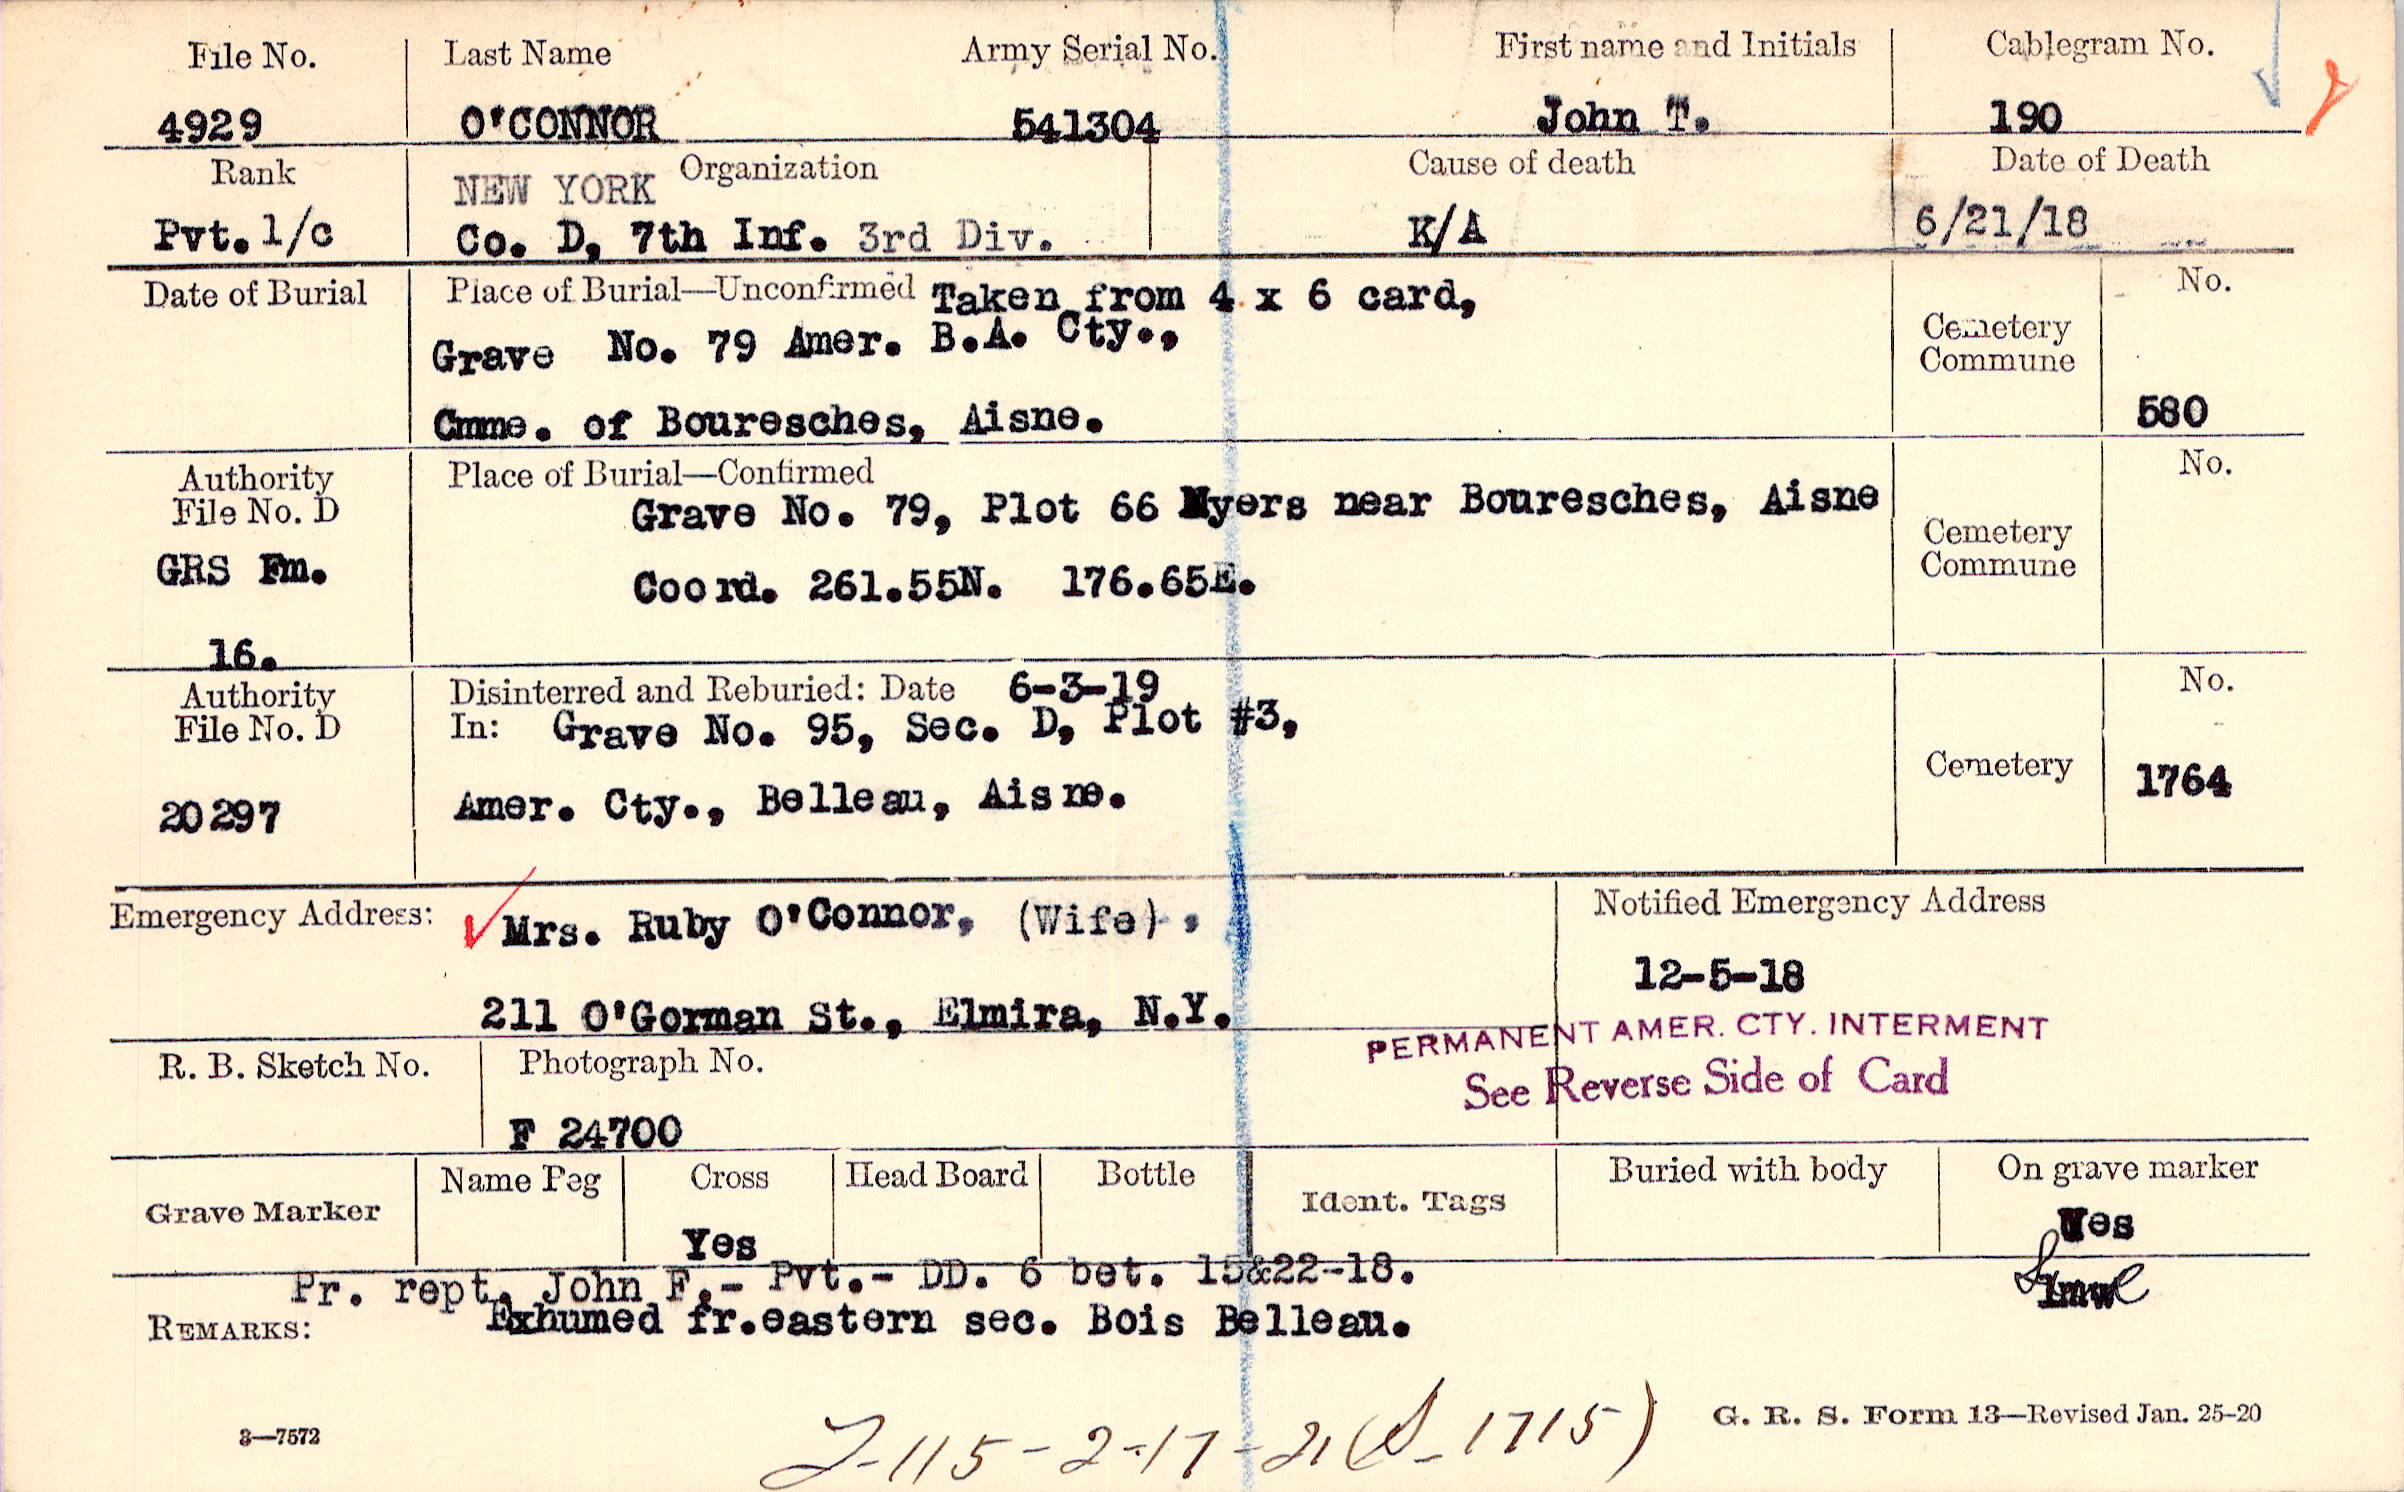 File No. Last Name Army Serial No. First name and Initials Cablegram No.
4929 O'CONNOR 541304 John T. 190
Rank Organization Cause of death Date of Death
NEW YORK
Pvt. 1/c Co. D, 7th Inf. 3rd Div. K/A 6/21/18
Date of Burial Place of Burial—Unconfirmed Taken from 4 x 6 card, No.
Grave No. 79 Amer. B.A. Cty., Cemetery
Commune
Cmme. of Bouresches, Aisne. 580
Authority Place of Burial—Confirmed No.
File No. D Grave No. 79, Plot 66 Myers near Bouresches, Aisne
Cemetery
GRS Fm. Coord. 261.55N. 176.65E. Commune
16.
Authority Disinterred and Reburied: Date 6-3-19 No.
File No. D In: Grave No. 95, Sec. D, Plot #3,
Cemetery 1764
20297 Amer. Cty., Belleau, Aisne.
Emergency Address: Mrs. Ruby O'Connor, (Wife), Notified Emergency Address
12-5-18
211 O'Gorman St., Elmira, N.Y.
PERMANENT AMER. CTY. INTERMENT
R. B. Sketch No. Photograph No. See Reverse Side of Card
F 24700
Grave Marker Name Peg Cross Head Board Bottle Ident. Tags Buried with body On grave marker
Yes Yes
Pr. rept. John F.- Pvt.- DD. 6 bet. 15&22-18.
REMARKS: Exhumed fr.eastern sec. Bois Belleau.
3—7572 G. R. S. Form 13—Revised Jan. 25-20